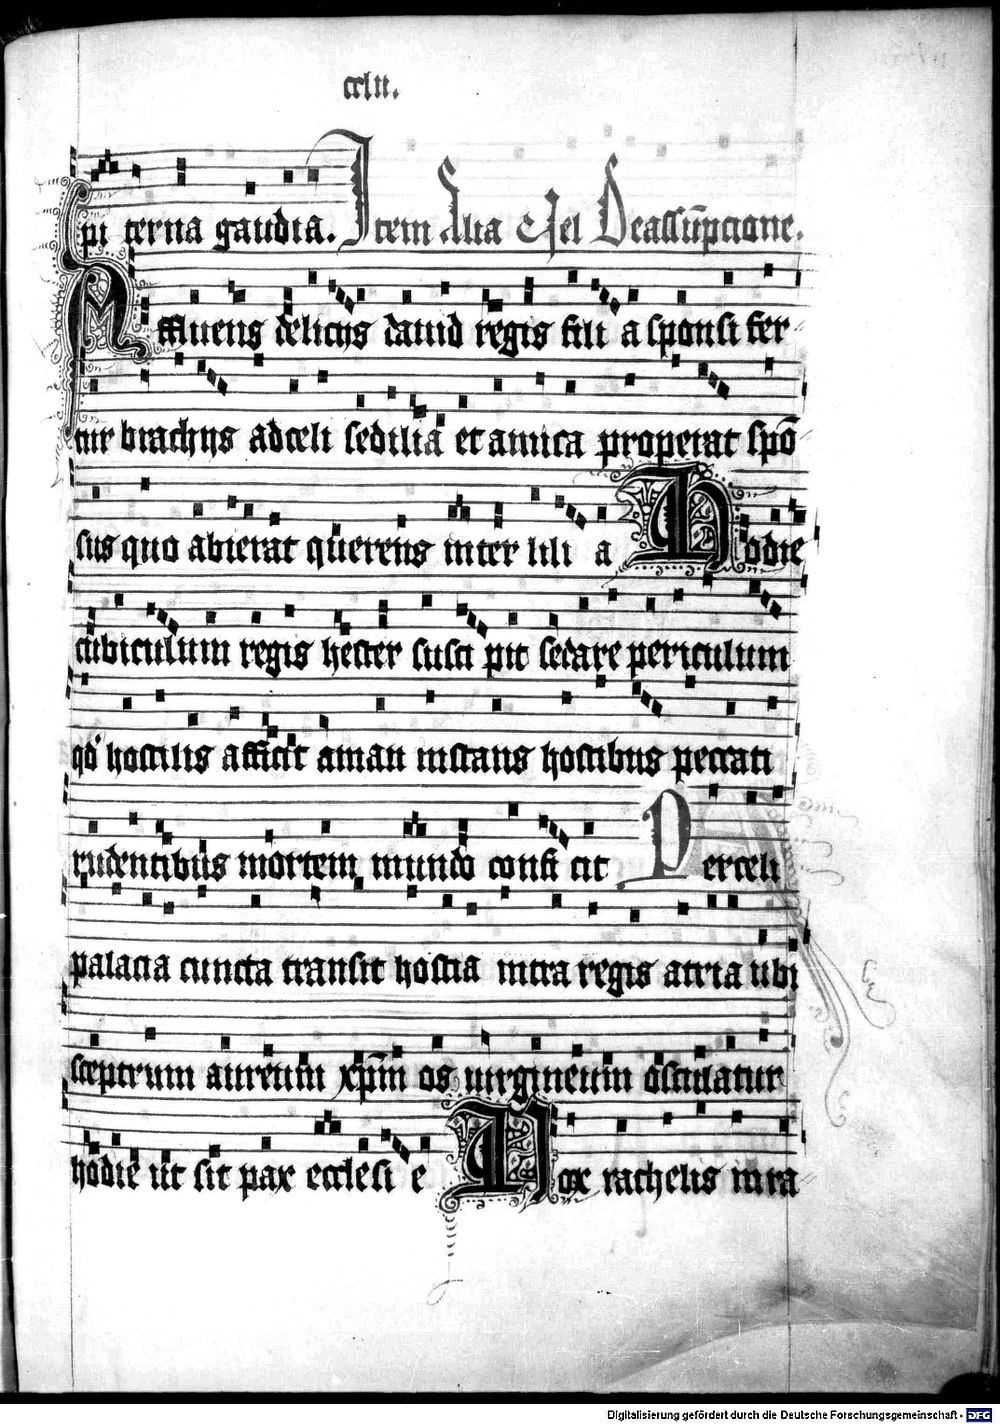 cclii.
pi terna gaudia. Item Alia Vel De assūpcione.
Affluens deliciis dauid regis fili a sponsi fer
tur brachiis ad celi sedilia et amica properat spō
sus quo abierat querens inter lili a Hodie
cubiculum regis hester susci pit sedare periculum
qđ hostilis afficit aman instans hostibus peccati
rudentibus mortem mundo confi cit Per celi
palacia cuncta transit hostia intra regis atria ubi
sceptrum aureum xp̄m os uirgineum osculatur
hodie ut sit pax ecclesi e Vox rachelis in ra
Digitalisierung gefördert durch die Deutsche Forschungsgemeinschaft - DFG